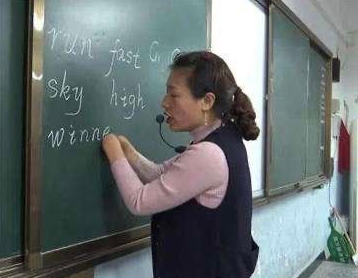 run fast
sky high
winne